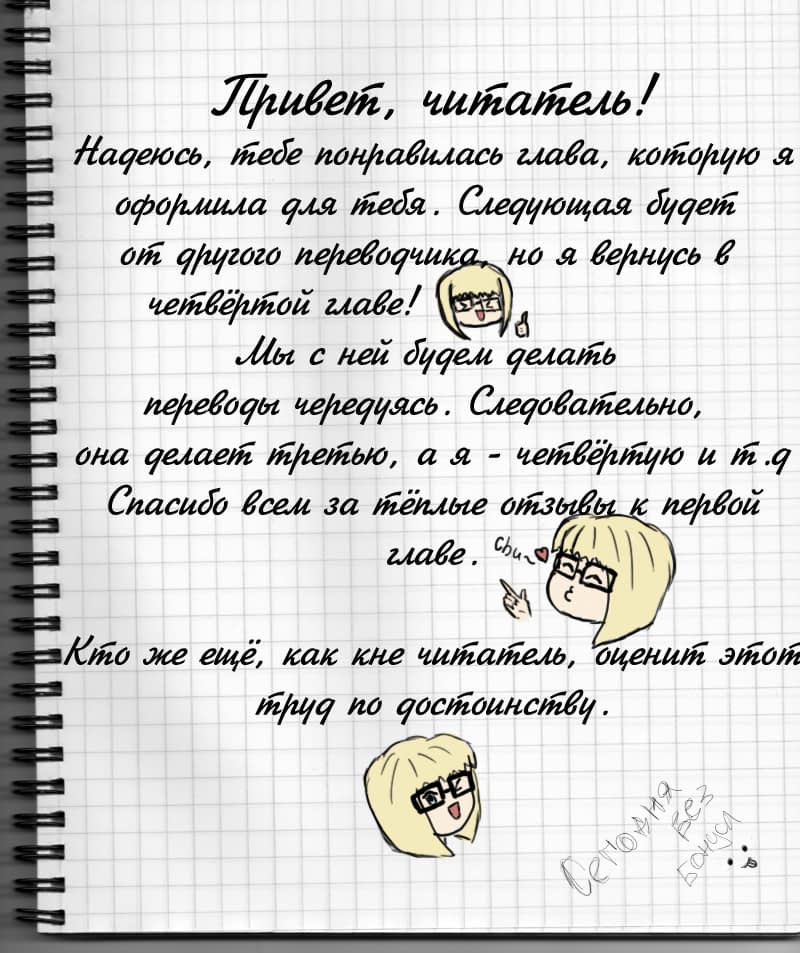 Привет, читатель!
Надеюсь, тебе понравилась глава, которую я
оформила для тебя. Следующая будет
от другого переводчика, но я вернусь в
четвёртой главе!
Мы с ней будем делать
переводы чередуясь. Следовательно,
она делает третью, а я - четвёртую и т.д
Спасибо всем за тёплые отзывы к первой
главе.
Кто же ещё, как кне читатель, оценит этот
труд по достоинству.
Сегодня
без
бонуса